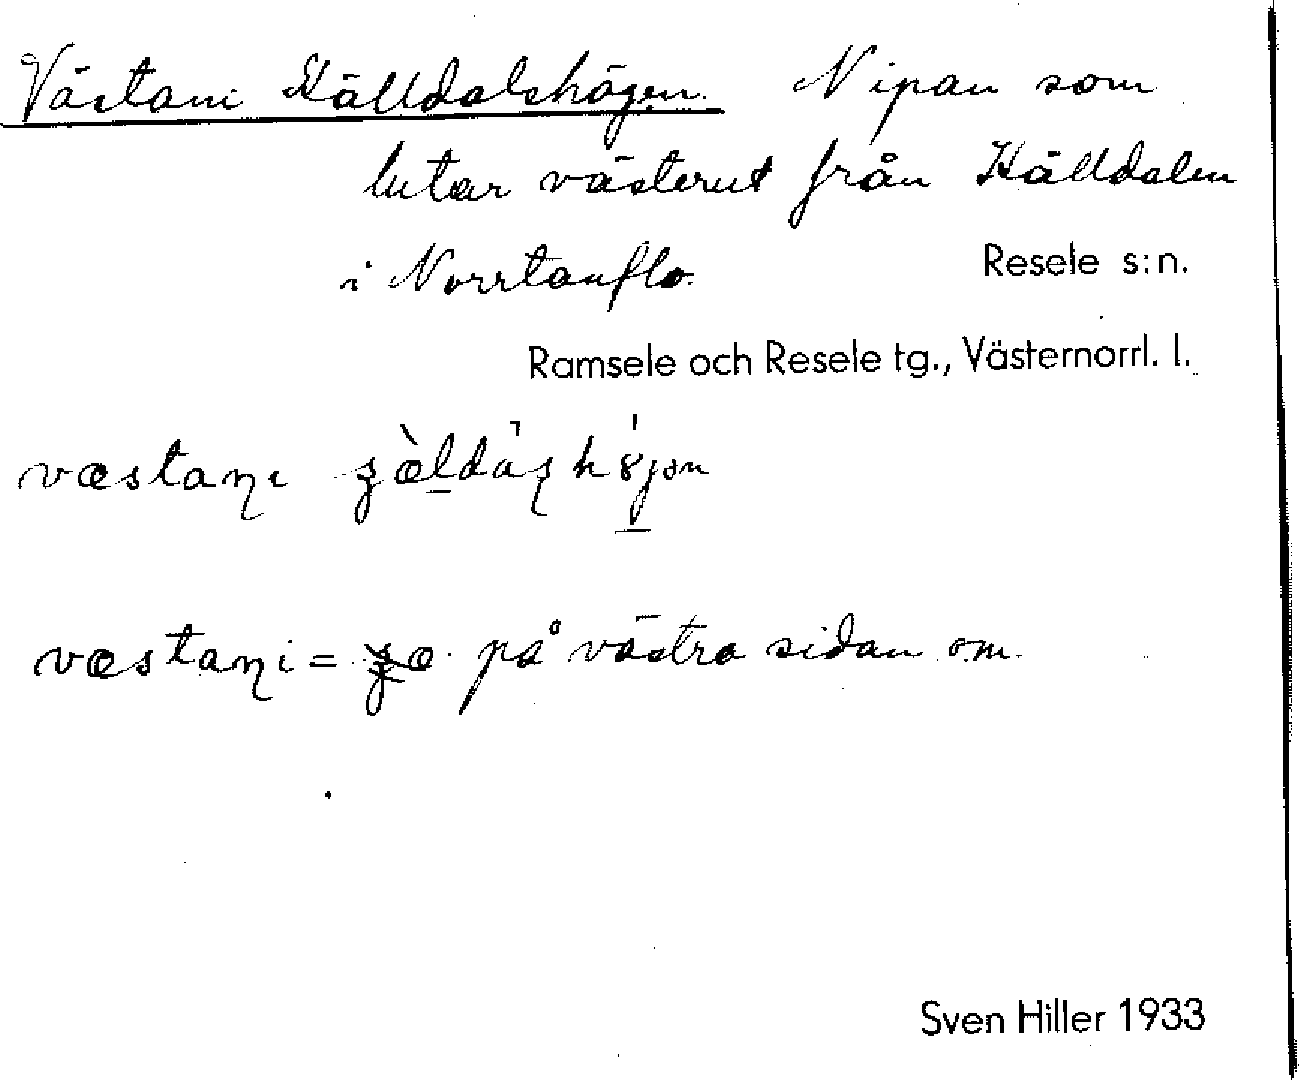 Västani Källdalshögen. Nipan som
lutar västerut från Källdalen
i Norrtanflo. Resele s:n.
Ramsele och Resele tg., Västernorrl. l.
væstani
væstani = på västra sidan om.
Sven Hiller 1933